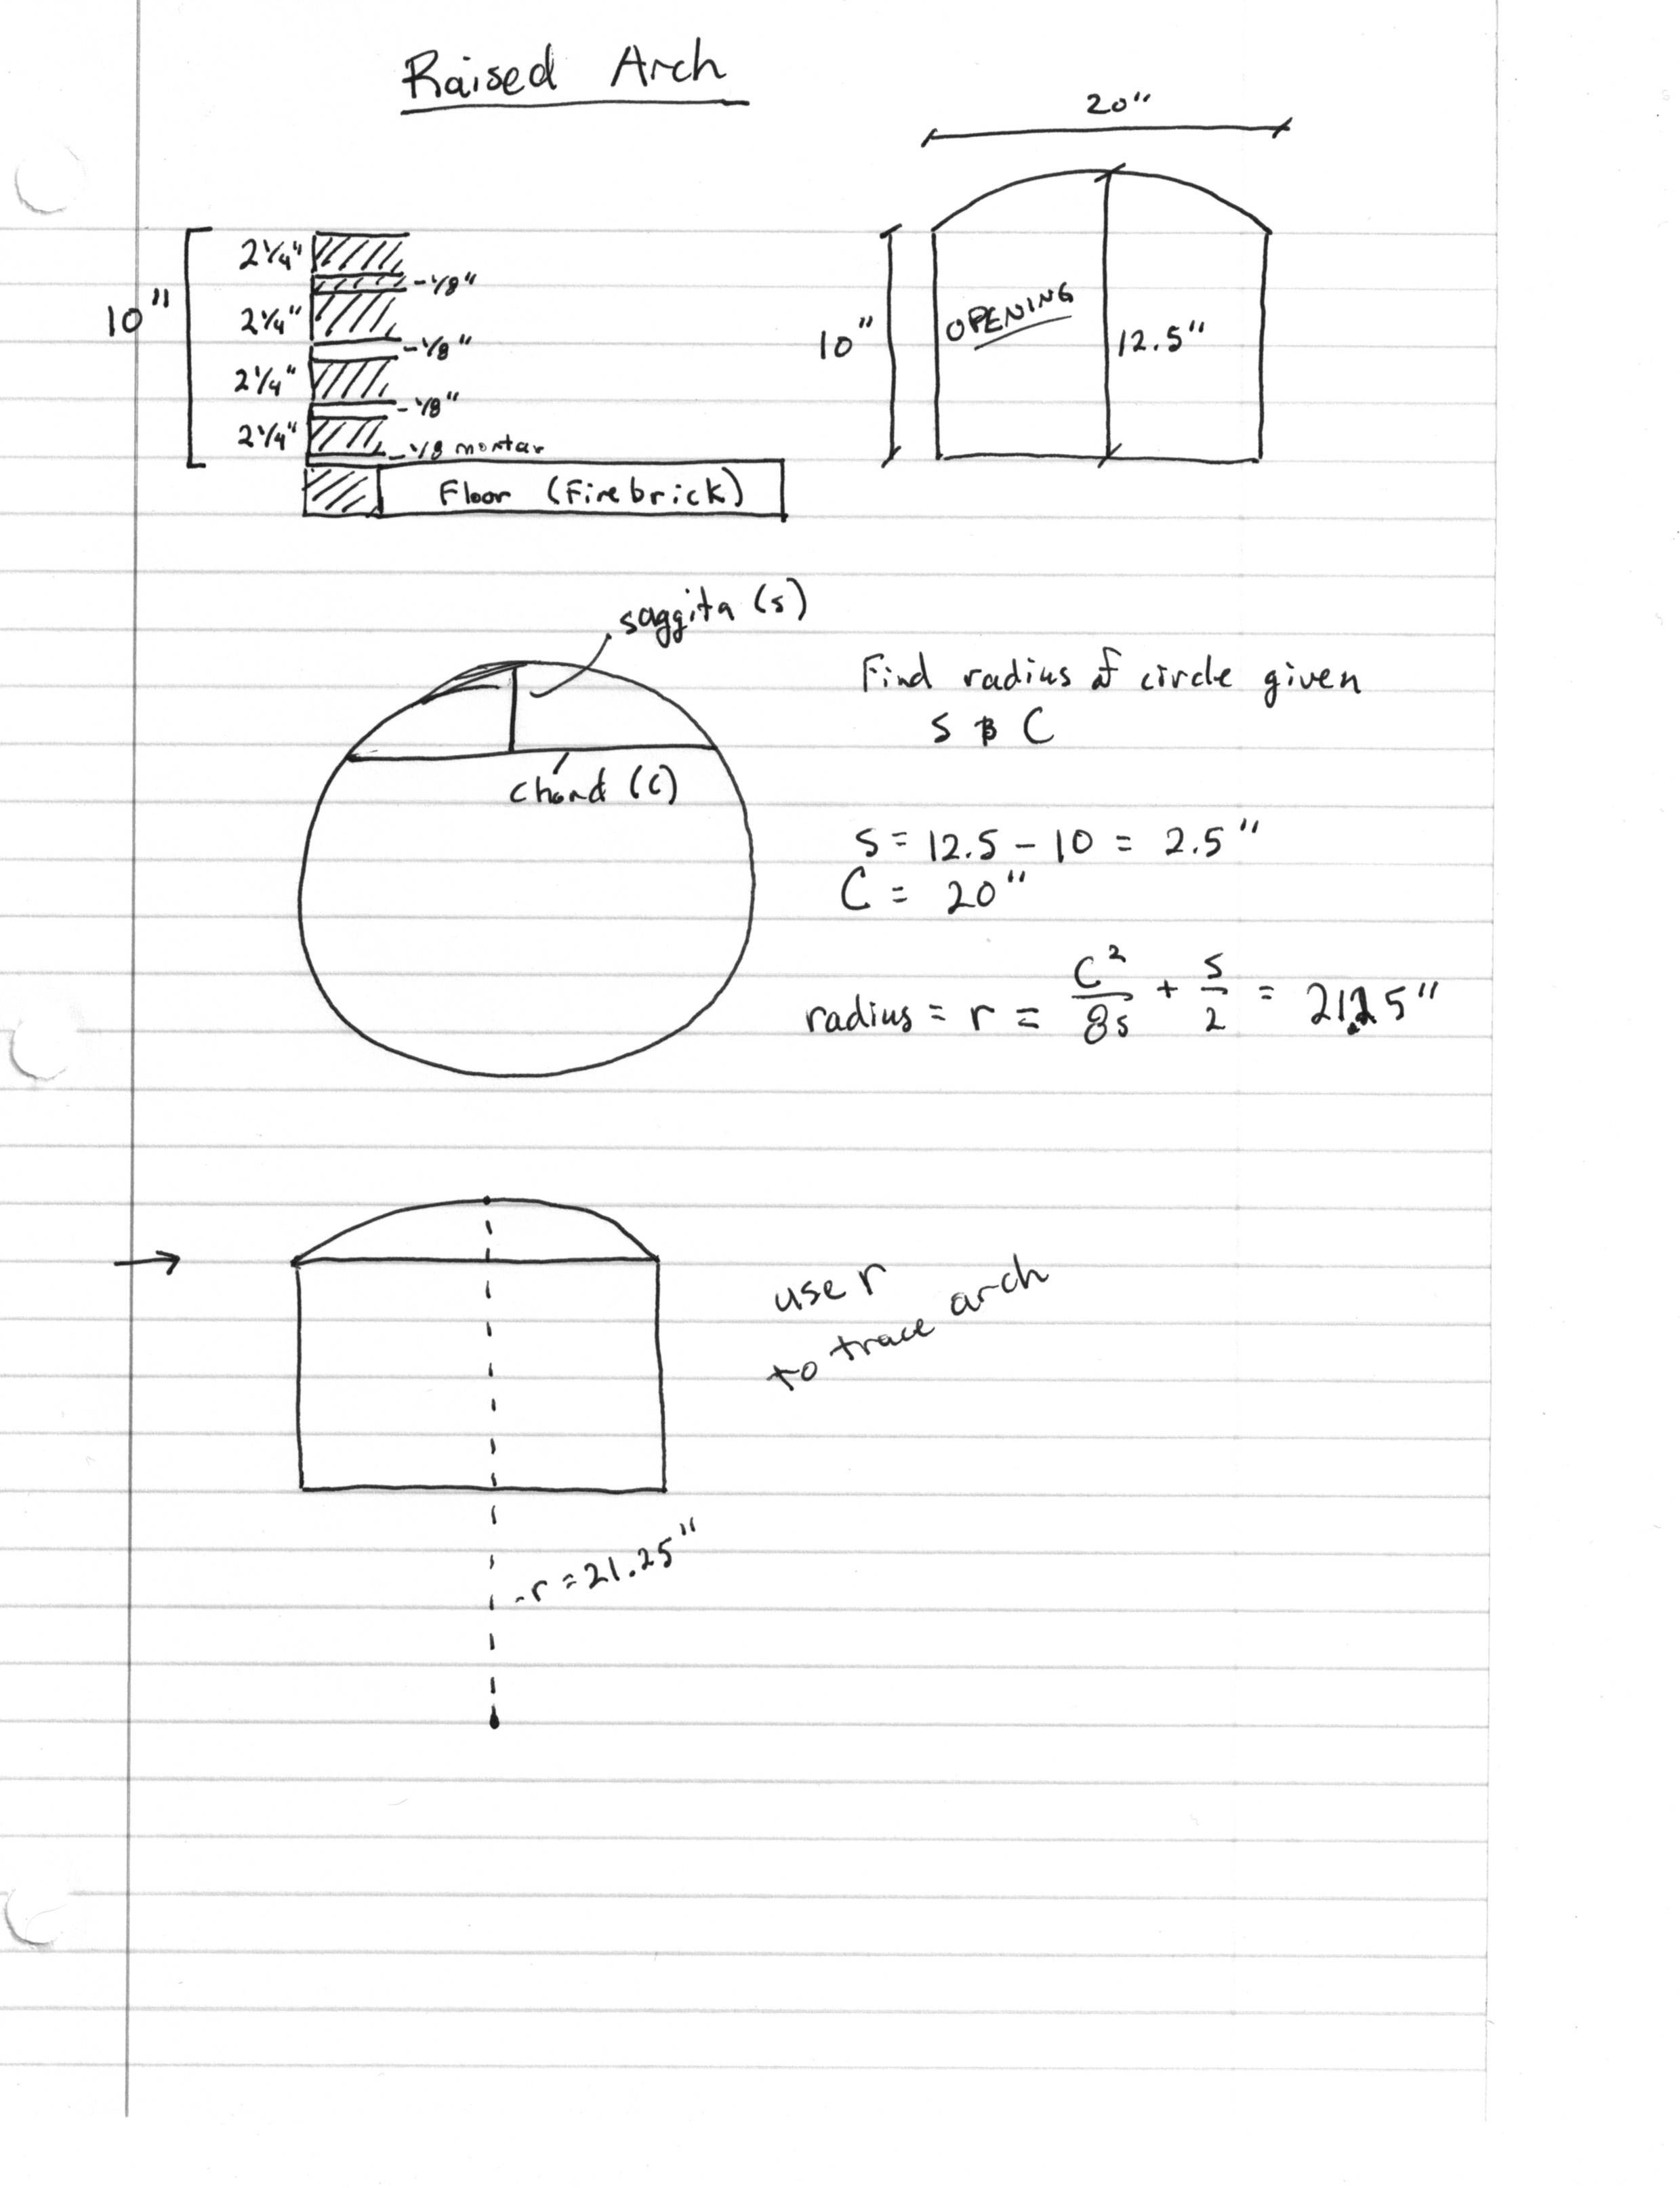 Raised Arch
20"
10"
2 1/4"
-1/8"
2 1/4"
-1/8"
2 1/4"
-1/8"
2 1/4"
-1/8 mortar
Floor (Firebrick)
10"
OPENING
12.5"
saggita (s)
chord (c)
Find radius of circle given
S & C
S = 12.5 - 10 = 2.5"
C = 20"
radius = r = C²/8s + s/2 = 21.25"
use r
to trace arch
-r = 21.25"